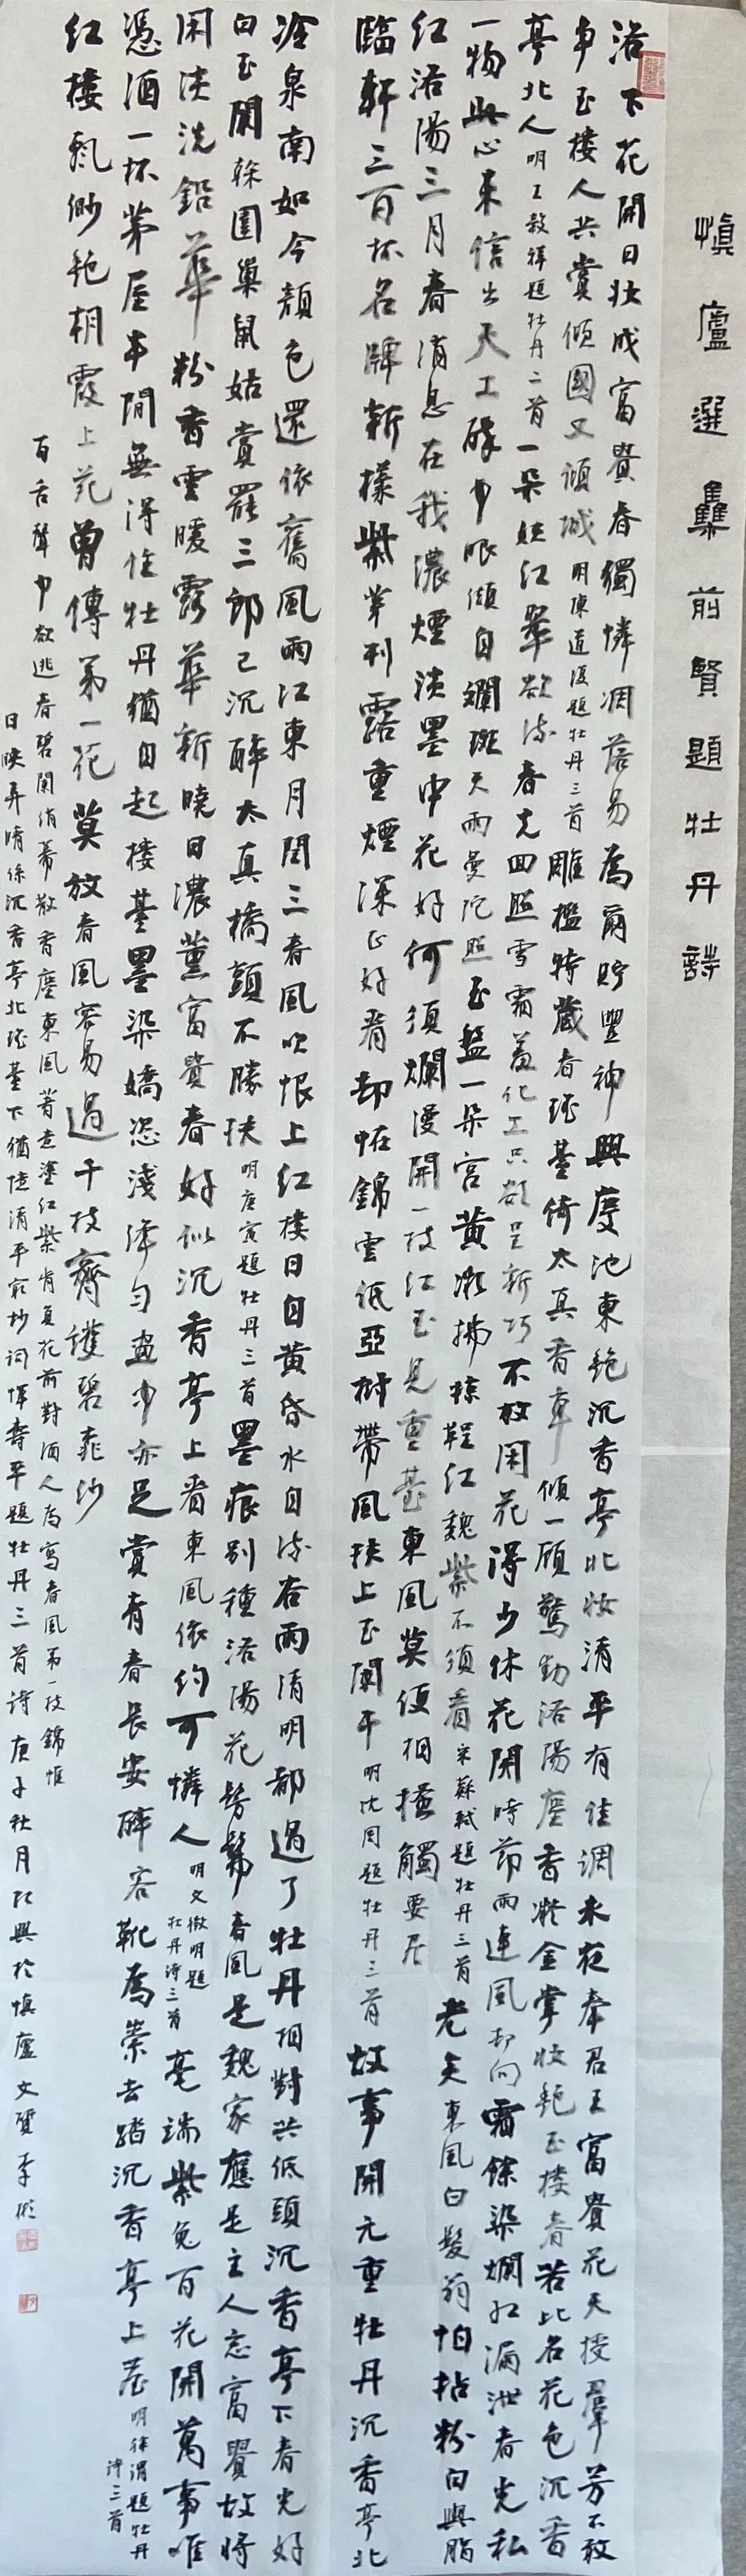 慎廬選集前賢題牡丹詩
洛下花開日壯成富貴春獨憐凋落易為爾貯豐神興慶池東艷沉香亭北妝清平有佳調未夜奉君王富貴花天授群芳不敢
爭玉樓人共賞傾國又傾城明陳道復題牡丹三首雕檻特藏春瑤臺倚太真香車傾一顧驚動洛陽塵香凝金掌妝艷玉樓春若比名花色沉香
亭北人明王穀祥題牡丹二首一朵妖紅翠欲流春光回照雪霜羞化工只欲呈新巧不放閑花得少休花開時節雨連風卻向霜餘染爛紅漏泄春光私
一物此心未信出天工醉中眼纈自斕斑天雨曼陀照玉盤一朵宮黃微拂掠鞓紅魏紫不須看宋蘇軾題牡丹三首老矣東風白髮翁怕拈粉白與脂
紅洛陽三月春消息在我濃煙淡墨中花好何須爛漫開一枝紅玉見重臺東風莫便相搔觸要居
臨軒三百杯名牌新樣紫羅刊露重煙深正好看却怪錦雲低亞樹帶風扶上玉闌干明沈周題牡丹三首故事開元重牡丹沉香亭北
冷泉南如今顏色還依舊風雨江東月閏三春風吹恨上紅樓日自黃昏水自流谷雨清明都過了牡丹相對共低頭沉香亭下春光好
白玉闌乾圍巢鼠姑賞罷三郎已沉醉太真橋頭不勝扶明唐寅題牡丹三首墨痕別種洛陽花彷彿春風是魏家應是主人忘富貴故將
閑淡洗鉛華粉香雲暖露華新曉日濃薰富貴春好似沉香亭上看東風依約可憐人明文徵明題牡丹詩三首毫端紫兔百花開萬事唯
憑酒一杯茅屋半間無得住牡丹猶自起樓臺墨染嬌恣淺淬勻畫中亦足賞青春長安醉客靴為祟去踏沉香亭上塵明徐渭題牡丹詩三首
紅樓飄緲艷朝霞上苑曾傳第一花莫放春風容易過千枝齊護碧籠紗
百舌聲中欲逃春碧闌綃幕散香塵東風著意塗紅紫肯負花前對酒人為寫春風第一枝錦帷
日映弄晴絲沉香亭北瑤臺下猶憶清平官抄詞惲壽平題牡丹三首詩庚子秋月記興於慎廬文質李